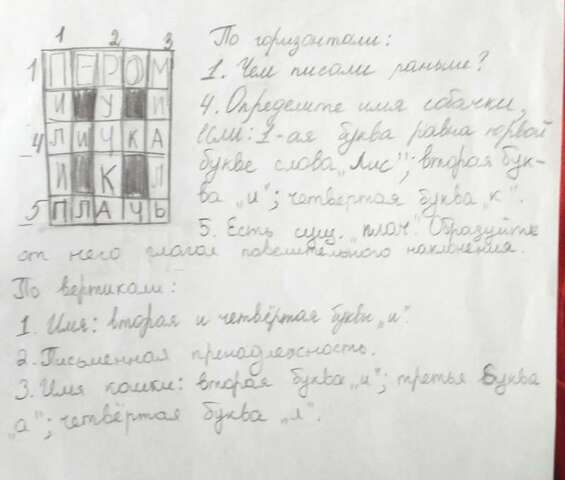 1 2 3
1 П Е Р О М
И У И
4 Л И Ч К А
И К Л
5 П Л А Ч Ь
По горизонтали:
1. Чем писали раньше?
4. Определите имя собачки,
если: 1-ая буква равна первой
букве слова „Лис"; вторая бук-
ва „и"; четвёртая буква „к".
5. Есть сущ. „плач". Образуйте
от него глагол повелительного наклонения.
По вертикали:
1. Имя: вторая и четвёртая буквы „и".
2. Письменная принадлежность.
3. Имя кошки: вторая буква „и"; третья буква
„а"; четвёртая буква „л".